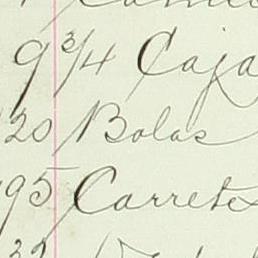 9 3/4 Caja
20 Bolas
95 Carrete
32